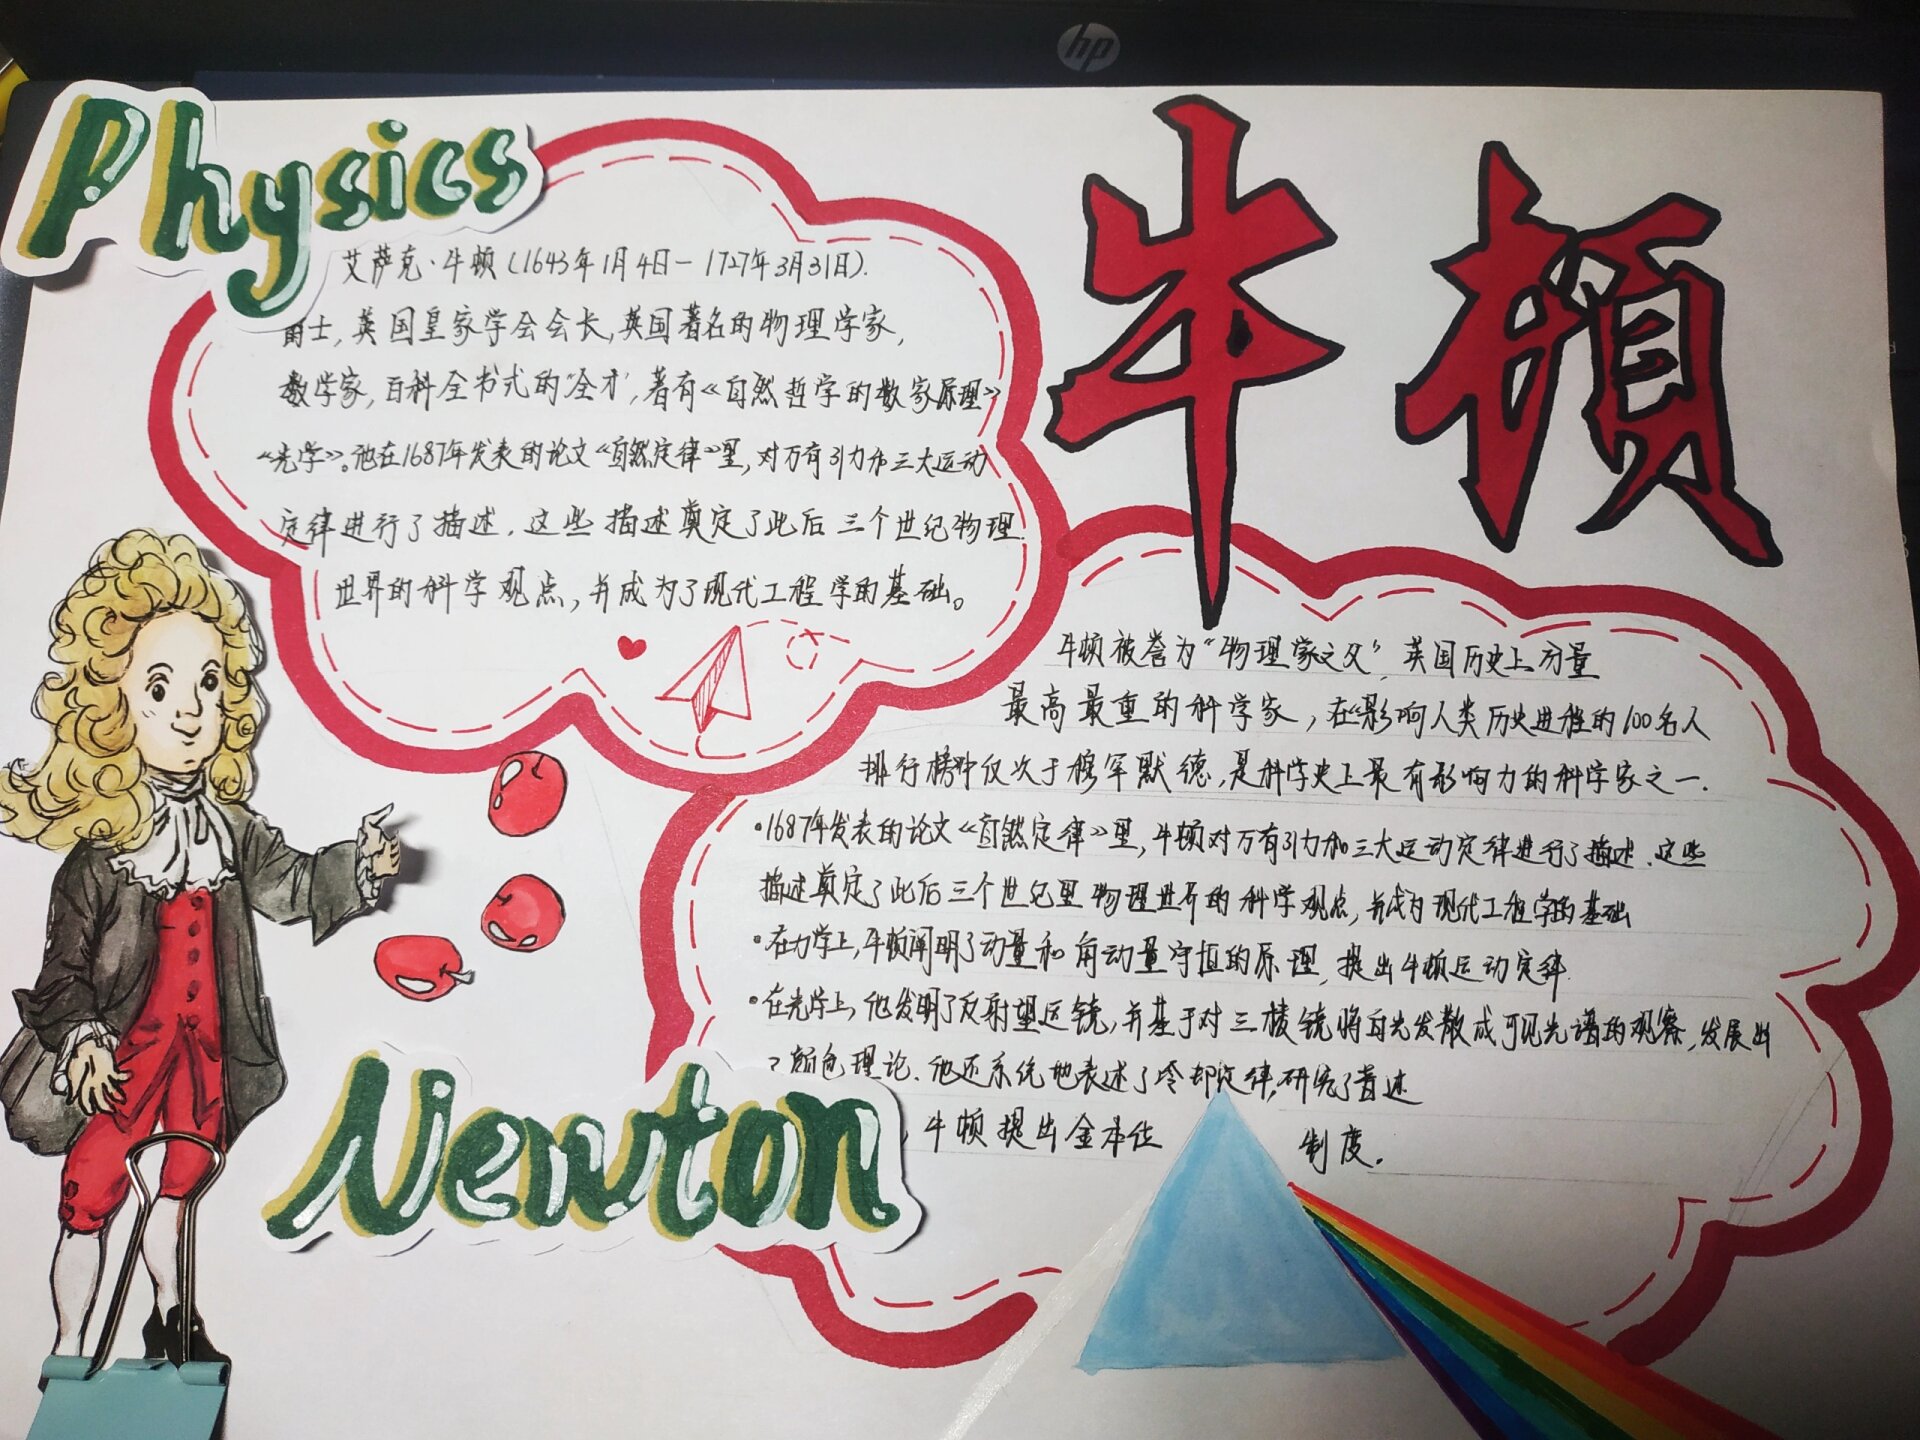 hp
Physics
牛顿
艾萨克·牛顿(1643年1月4日—1727年3月31日).
爵士,英国皇家学会会长,英国著名的物理学家,
数学家,百科全书式的“全才”,著有《自然哲学的数家原理》
《光学》。他在1687年发表的论文《自然定律》里,对万有引力和三大运动
定律进行了描述.这些描述奠定了此后三个世纪物理
世界的科学观点,并成为了现代工程学的基础。
牛顿被誉为“物理家之父”,英国历史上分量
最高最重的科学家,在《影响人类历史进程的100名人
排行榜》中仅次于穆罕默德,是科学史上最有影响力的科学家之一.
·1687年发表的论文《自然定律》里,牛顿对万有引力和三大运动定律进行了描述.这些
描述奠定了此后三个世纪里物理世界的科学观点,并成为现代工程学的基础
·在力学上,牛顿阐明了动量和角动量守恒的原理,提出牛顿运动定律.
·在光学上,他发明了反射望远镜,并基于对三棱镜将白光发散成可见光谱的观察,发展出
了颜色理论.他还系统地表述了冷却定律,研究了音速
,牛顿提出金本位 制度.
Newton